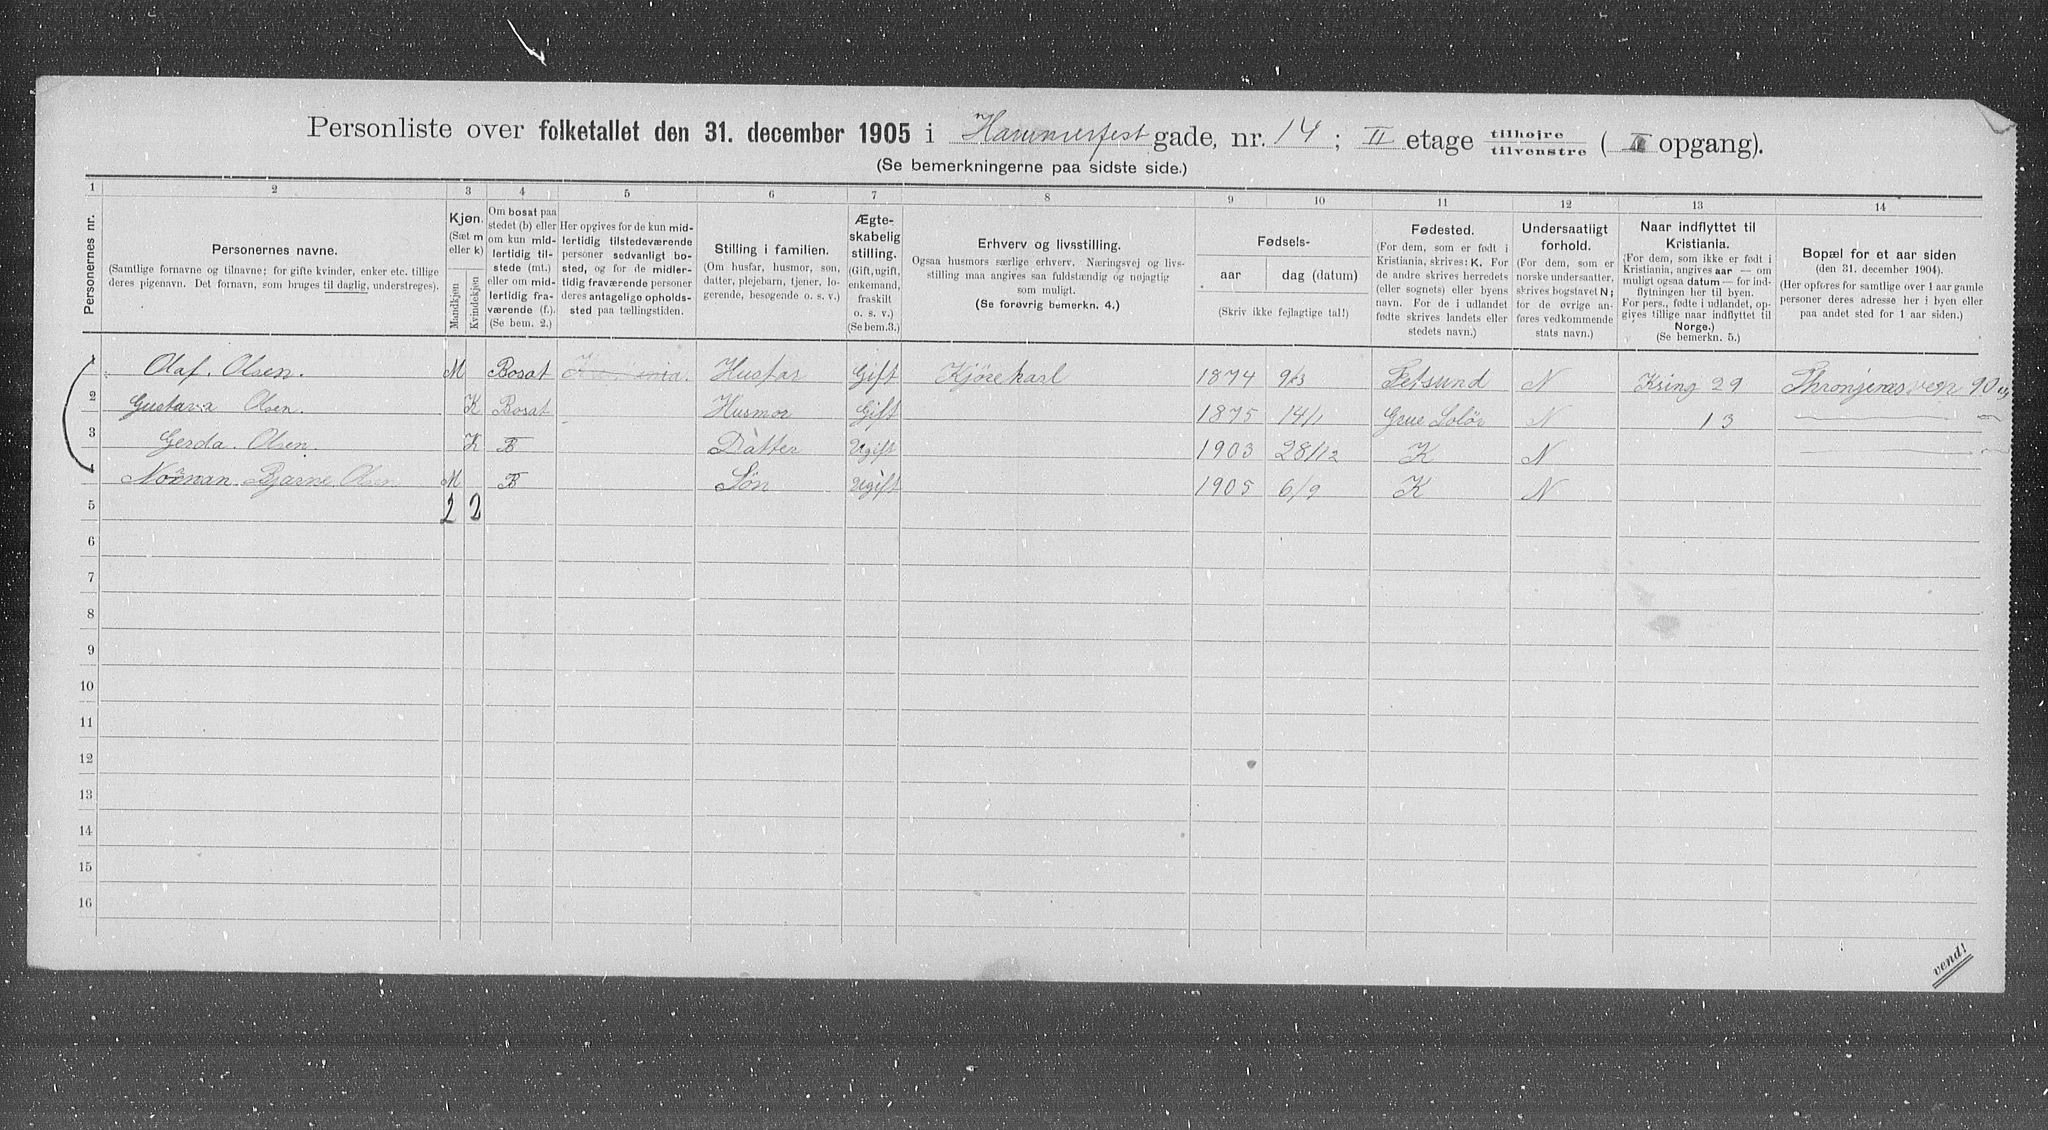 Personliste over folketallet den 31. december 1905 i Hammerfest gade, nr. 14; II etage tilhøjre tilvenstre ( II opgang).
(Se bemerkningerne paa sidste side.)
1 2 3 4 5 6 7 8 9 10 11 12 13 14
Personernes nr.
Personernes navne.
(Samtlige fornavne og tilnavne; for gifte kvinder, enker etc. tillige
deres pigenavn. Det fornavn, som bruges til daglig, understreges).
Kjøn.
(Sæt m
eller k)
Mandkjøn
Kvindekjøn
Om bosat paa
stedet (b) eller
om kun mid-
lertidig til-
stede (mt.)
eller om mid-
lertidig fra-
værende (f.).
(Se bem. 2.)
Her opgives for de kun mid-
lertidig tilstedeværende
personer sedvanligt bo-
sted, og for de midler-
tidig fraværende personer
deres antagelige opholds-
sted paa tællingstiden.
Stilling i familien.
(Om husfar, husmor, søn,
datter, plejebarn, tjener, lo-
gerende, besøgende o. s. v.)
Ægte-
skabelig
stilling.
(Gift, ugift,
enkemand,
fraskilt
o. s. v.)
(Se bem.3.)
Erhverv og livsstilling.
Ogsaa husmors særlige erhverv. Næringsvej og livs-
stilling maa angives saa fuldstændig og nøjagtig
som muligt.
(Se forøvrig bemerkn. 4.)
Fødsels-
aar
dag (datum)
(Skriv ikke fejlagtige tal!)
Fødested.
(For dem, som er født i
Kristiania, skrives: K. For
de andre skrives herredets
(eller sognets) eller byens
navn. For de i udlandet
fødte skrives landets eller
stedets navn.)
Undersaatligt
forhold.
(For dem, som er
norske undersaatter,
skrives bogstavet N;
for de øvrige an-
føres vedkommende
stats navn.)
Naar indflyttet til
Kristiania.
(For dem, som ikke er født i
Kristiania, angives aar — om
muligt ogsaa datum — for ind-
flytningen her til byen.
For pers., fødte i udlandet, op-
gives tillige naar indflyttet til
Norge.)
(Se bemerkn. 5.)
Bopæl for et aar siden
(den 31. december 1904).
(Her opføres for samtlige over 1 aar gamle
personer deres adresse her i byen eller
paa andet sted for 1 aar siden.)
1 Olaf. Olsen. M Bosat Kristiania. Husfar Gift Kjørekarl 1874 9/3 Fetsund N 29 10
2 Gustava Olsen. K Bosat Husmor Gift 1875 14/1 Grue Solør N 13
3 Gerda. Olsen. K B Datter Ugift 1903 28/12 K N
4 Norman Bjarne Olsen M B Søn Ugift 1905 6/9 K N
5 2 2
6
7
8
9
10
11
12
13
14
15
16
vend!